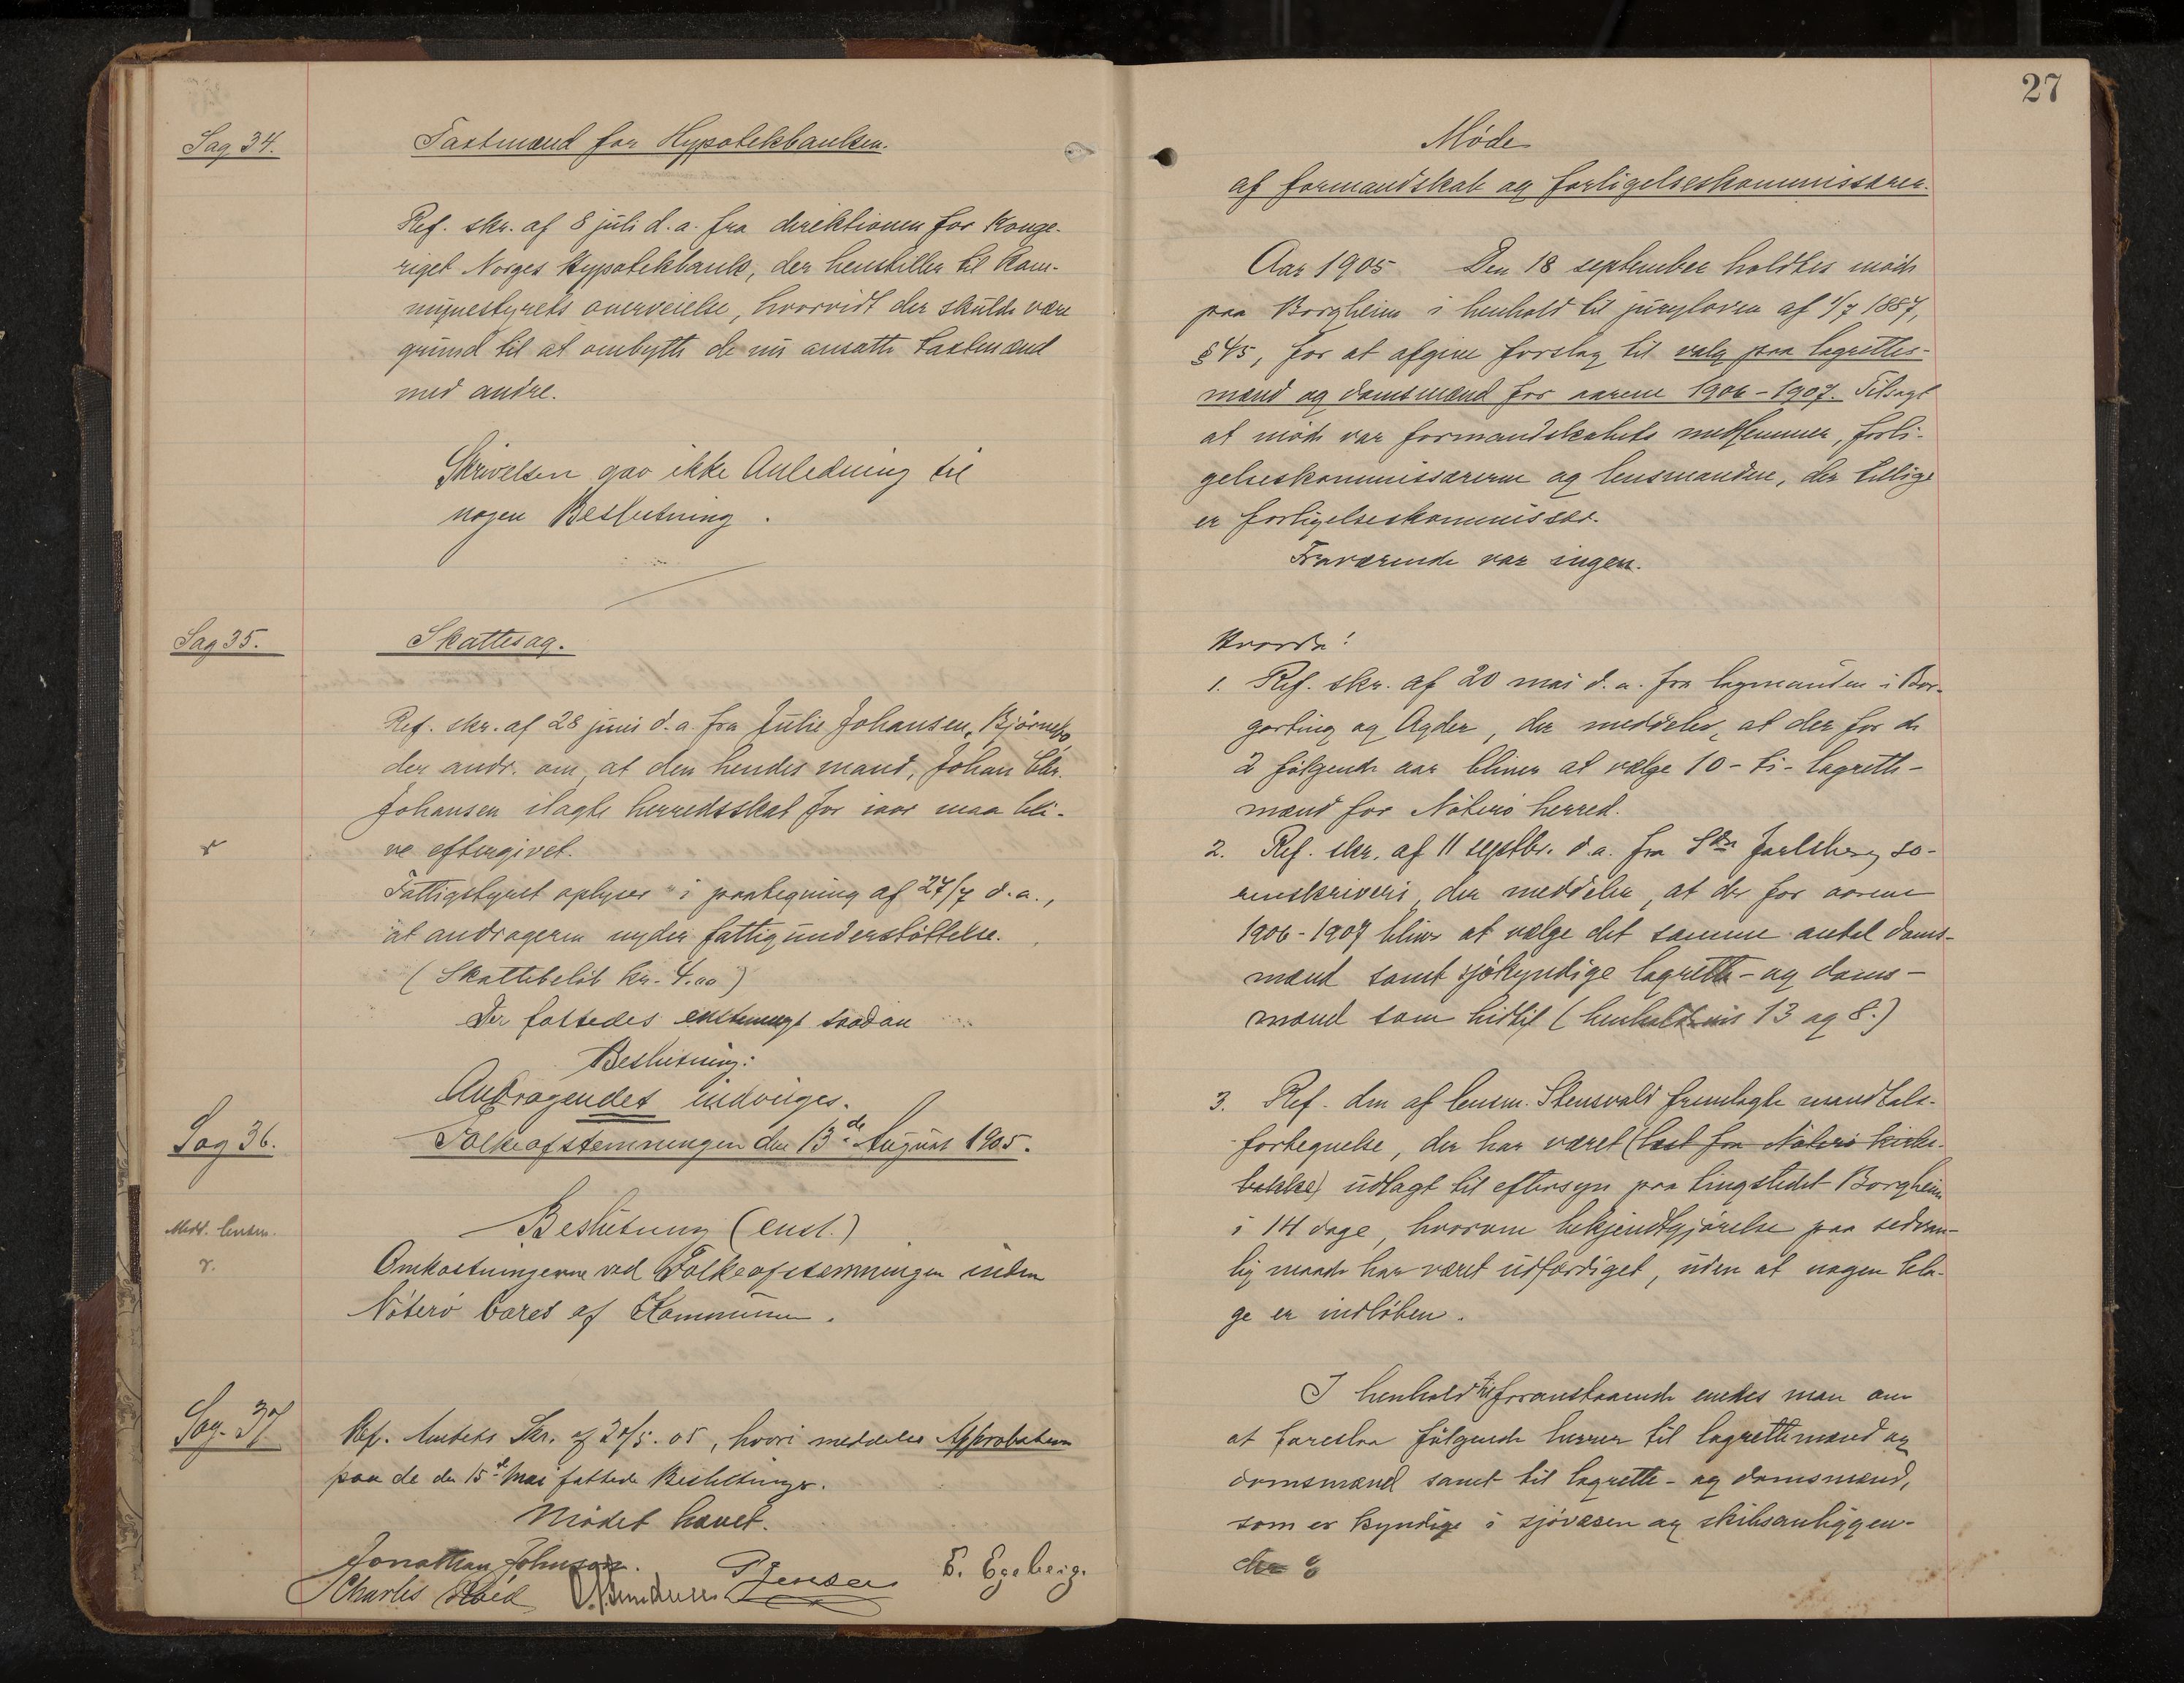 Sag 34.
Taxtmænd for Hypotekbanken.
Ref. skr. af 8 juli d. a. fra direktionen for Konge-
riget Norges Hypotekbank, der henstiller til Kom-
munestyrets overveielse, hvorvidt der skulde være
grund til at ombytte de nu ansatte taxtmænd
med andre.
Skrivelsen gav ikke Anledning til
nogen Beslutning.
Sag 35.
Skattesag.
Ref. skr. af 28 juni d. a. fra Julie Johansen, Bjørnebo
der andr. om, at den hendes mand, Johan Chr.
Johansen ilagte herredsskat for iaar maa bli-
ve eftergivet.
Fattigstyret oplyser i paategning af 27/7 d. a.,
at andrageren nyder fattigunderstøttelse.
(Skattebeløb kr. 4.00)
Der fattedes enstemmigt saadan
Beslutning:
Andragendet indvilges.
Sag 36.
Folkeafstemningen den 13de August 1905.
Medd. lensm.
r.
Beslutning (enst.)
Omkostningerne ved Folkeafstemningen inden
Nøterø bæres af Kommunen.
Sag. 37
Ref. Amtets Skr. af 29/5. 05, hvori meddeles Approbation
paa de den 15de Mai fattede Beslutninger.
Mødet hævet.
Jonathan Johnson.
P Jensen
E. Egeberg.
Charles
27
Møde
af formandskab og forligelseskommissærer.
Aar 1905 Den 18 september holdtes møde
paa Borgheim i henhold til juryloven af 1/7 1887,
§ 45, for at afgive forslag til valg paa lagrettes-
mænd og domsmænd for aarene 1906-1907. Tilsagt
at møde var formandskabets medlemmer, forli-
gelseskommissærerne og lensmanden, der tillige
er forligelseskommissær.
Fraværende var ingen.
Hvorda:
1. Ref. skr. af 20 mai d. a. fra lagmanden i Bor-
garting og Agder, der meddeler, at der for de
2 følgende aar bliver at vælge 10 - ti - lagrette-
mænd for Nøterø herred.
2. Ref. skr. af 11 septbr. d. a. fra Søn Jarlsberg so-
renskriveri, der meddeler, at der for aarene
1906-1907 bliver at vælge det samme antal doms-
mænd samt sjøkyndige lagrette- og doms-
mænd som hidtil (henholdsvis 13 og 8.)
3. Ref. den af lensm. Stensvold fremlagte mandtals-
fortegnelse, der har været (læst fra Nøterø kirke-
bakke) udlagt til eftersyn paa tingstedet Borgheim
i 14 dage, hvorom bekjendtgjørelse paa sedvan-
lig maade har været udfærdiget, uden at nogen kla-
ge er indløben.
I henhold til foranstaaende enedes man om
at foreslaa følgende herrer til lagrettemænd og
domsmænd samt til lagrette- og domsmænd,
som er kyndige i sjøvæsen og skibsanliggen-
der :